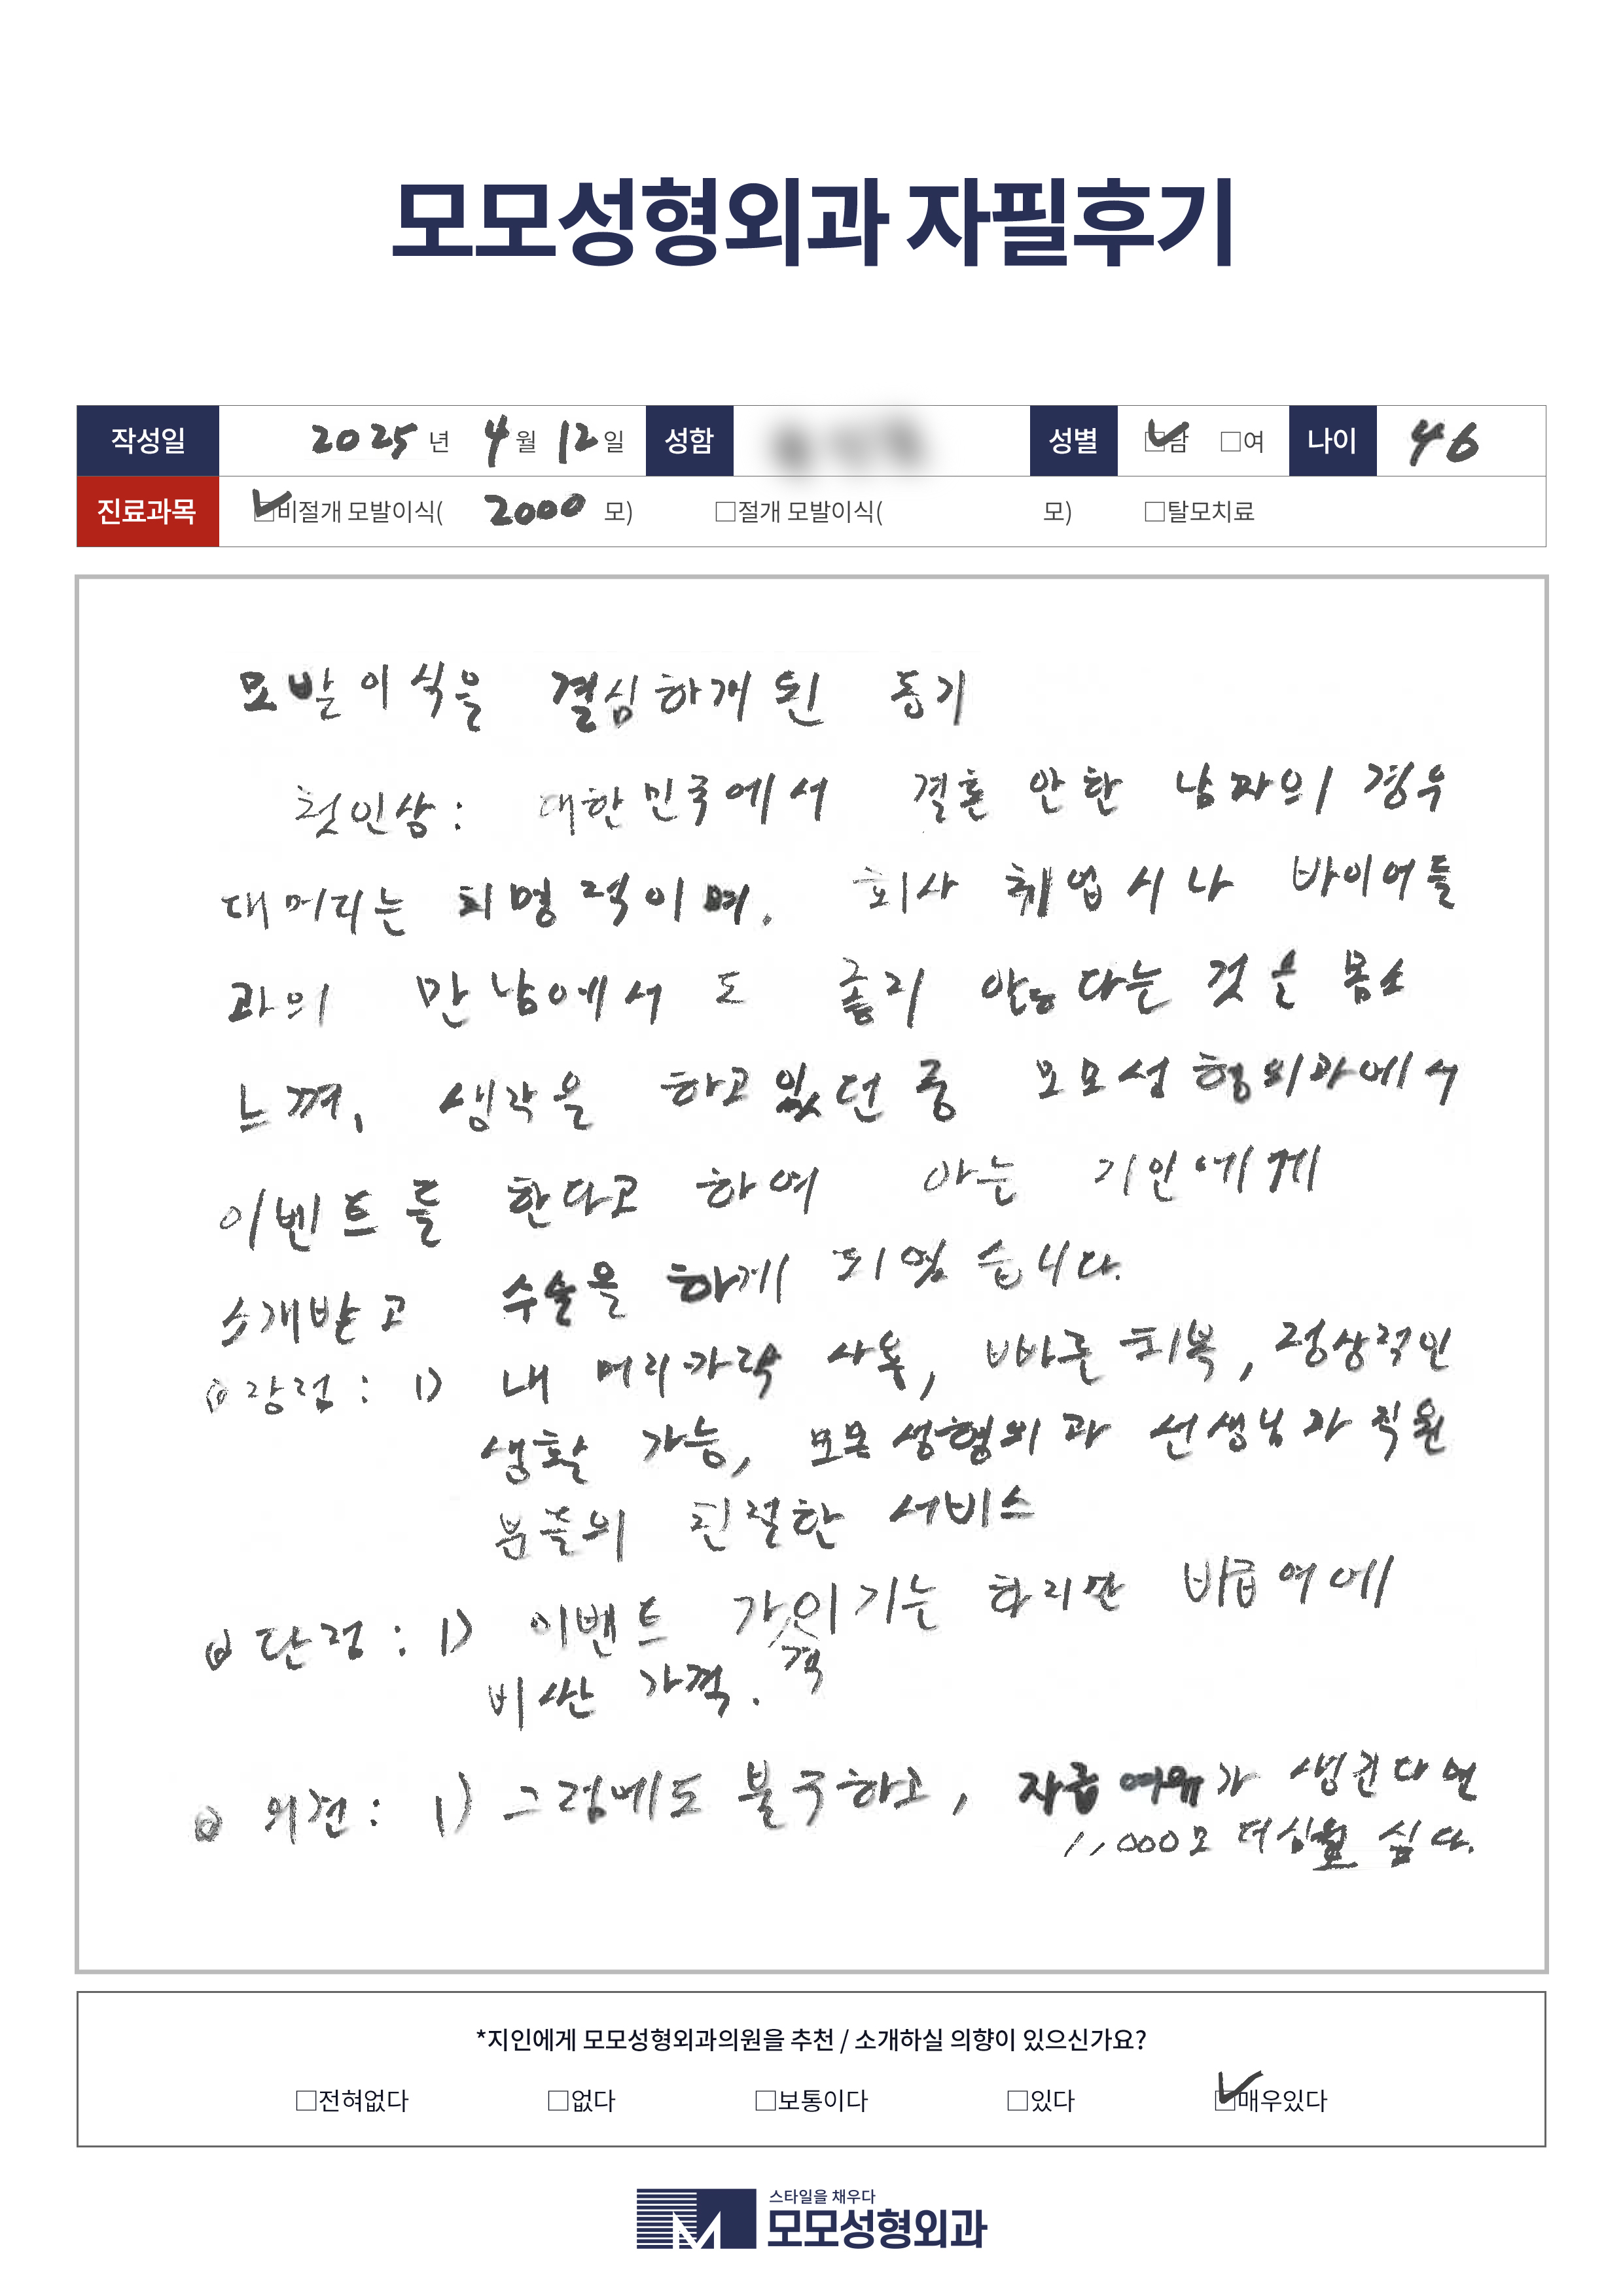 모모성형외과 자필후기
작성일 2025 년 4 월 12 일 성함 성별 ☑남 □여 나이 46
진료과목 ☑비절개 모발이식( 2000 모) □절개 모발이식( 모) □탈모치료
모발이식을 결심하게 된 동기
첫인상 : 대한민국에서 결혼 안한 남자의 경우
대머리는 치명적이며. 회사 취업시나 바이어들
과의 만남에서도 좋지 않다는 것을 몸소
느껴, 생각을 하고 있던 중 모모성형외과에서
이벤트를 한다고 하여 아는 지인에게
소개받고 수술을 하게 되었습니다.
장점 : 1) 내 머리카락 사용, 빠른 회복, 정상적인
생활 가능, 모모성형외과 선생님과 직원
분들의 친절한 서비스
단점 : 1) 이벤트 가격이기는 하지만 비급여에
비싼 가격.
의견 : 1) 그럼에도 불구하고, 자금 여유가 생긴다면
1,000모 더 심고 싶다.
*지인에게 모모성형외과의원을 추천 / 소개하실 의향이 있으신가요?
□전혀없다 □없다 □보통이다 □있다 ☑매우있다
스타일을 채우다
모모성형외과